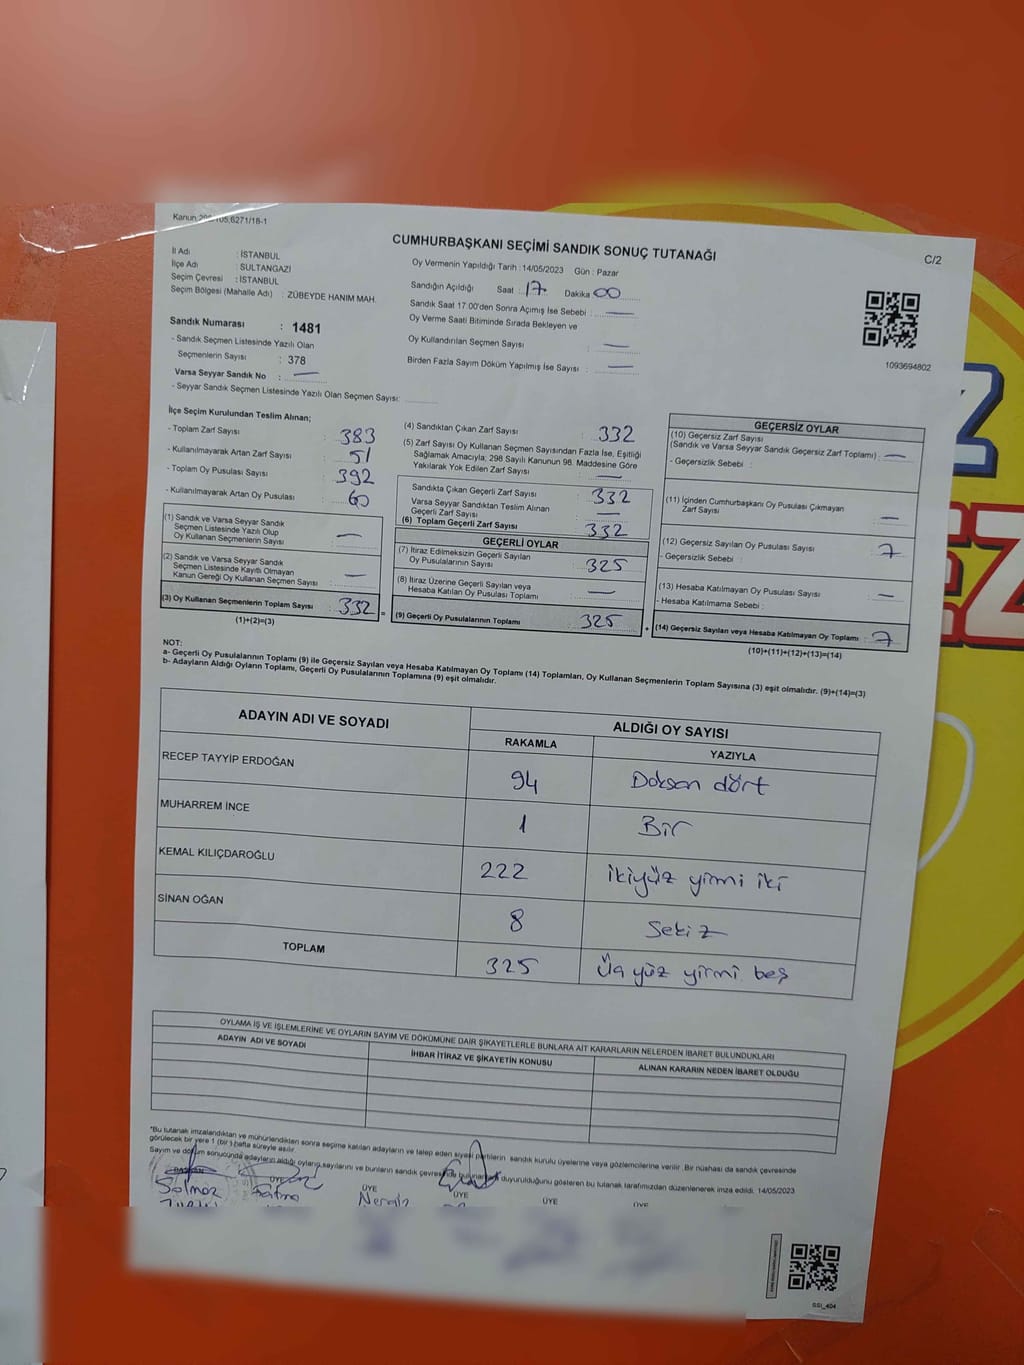 CUMHURBAŞKANI SEÇİMİ SANDIK SONUÇ TUTANAĞI
C/2
İl Adı : İSTANBUL
İlçe Adı : SULTANGAZİ
Seçim Çevresi : İSTANBUL
Seçim Bölgesi (Mahalle Adı) : ZÜBEYDE HANIM MAH.
Sandık Numarası : 1481
- Sandık Seçmen Listesinde Yazılı Olan
Seçmenlerin Sayısı : 378
Varsa Seyyar Sandık No : —
- Seyyar Sandık Seçmen Listesinde Yazılı Olan Seçmen Sayısı:
Oy Vermenin Yapıldığı Tarih : 14/05/2023 Gün : Pazar
Sandığın Açıldığı Saat : 17 Dakika 00
Sandık Saat 17.00'den Sonra Açımış İse Sebebi : —
Oy Verme Saati Bitiminde Sırada Bekleyen ve
Oy Kullandırılan Seçmen Sayısı : —
Birden Fazla Sayım Döküm Yapılmış İse Sayısı : —
1093694802
İlçe Seçim Kurulundan Teslim Alınan;
- Toplam Zarf Sayısı : 383
- Kullanılmayarak Artan Zarf Sayısı : 51
- Toplam Oy Pusulası Sayısı : 392
- Kullanılmayarak Artan Oy Pusulası : 60
(1) Sandık ve Varsa Seyyar Sandık
Seçmen Listesinde Yazılı Olup
Oy Kullanan Seçmenlerin Sayısı : —
(2) Sandık ve Varsa Seyyar Sandık
Seçmen Listesinde Kayıtlı Olmayan
Kanun Gereği Oy Kullanan Seçmen Sayısı : —
(3) Oy Kullanan Seçmenlerin Toplam Sayısı : 332
(1)+(2)=(3)
(4) Sandıktan Çıkan Zarf Sayısı : 332
(5) Zarf Sayısı Oy Kullanan Seçmen Sayısından Fazla İse, Eşitliği
Sağlamak Amacıyla; 298 Sayılı Kanunun 98. Maddesine Göre
Yakılarak Yok Edilen Zarf Sayısı : —
Sandıkta Çıkan Geçerli Zarf Sayısı : 332
Varsa Seyyar Sandıktan Teslim Alınan
Geçerli Zarf Sayısı : —
(6) Toplam Geçerli Zarf Sayısı : 332
GEÇERLİ OYLAR
(7) İtiraz Edilmeksizin Geçerli Sayılan
Oy Pusulalarının Sayısı : 325
(8) İtiraz Üzerine Geçerli Sayılan veya
Hesaba Katılan Oy Pusulası Toplamı : —
(9) Geçerli Oy Pusulalarının Toplamı : 325
GEÇERSİZ OYLAR
(10) Geçersiz Zarf Sayısı
(Sandık ve Varsa Seyyar Sandık Geçersiz Zarf Toplamı) : —
- Geçersizlik Sebebi :
(11) İçinden Cumhurbaşkanı Oy Pusulası Çıkmayan
Zarf Sayısı : —
(12) Geçersiz Sayılan Oy Pusulası Sayısı : 7
- Geçersizlik Sebebi :
(13) Hesaba Katılmayan Oy Pusulası Sayısı : —
- Hesaba Katılmama Sebebi :
(14) Geçersiz Sayılan veya Hesaba Katılmayan Oy Toplamı : 7
(10)+(11)+(12)+(13)=(14)
NOT:
a- Geçerli Oy Pusulalarının Toplamı (9) ile Geçersiz Sayılan veya Hesaba Katılmayan Oy Toplamı (14) Toplamları, Oy Kullanan Seçmenlerin Toplam Sayısına (3) eşit olmalıdır. (9)+(14)=(3)
b- Adayların Aldığı Oyların Toplamı, Geçerli Oy Pusulalarının Toplamına (9) eşit olmalıdır.
ADAYIN ADI VE SOYADI
ALDIĞI OY SAYISI
RAKAMLA YAZIYLA
RECEP TAYYİP ERDOĞAN 94 Doksan dört
MUHARREM İNCE 1 Bir
KEMAL KILIÇDAROĞLU 222 ikiyüz yirmi iki
SİNAN OĞAN 8 Sekiz
TOPLAM 325 Üç yüz yirmi beş
OYLAMA İŞ VE İŞLEMLERİNE VE OYLARIN SAYIM VE DÖKÜMÜNE DAİR ŞİKAYETLERLE BUNLARA AİT KARARLARIN NELERDEN İBARET BULUNDUKLARI
ADAYIN ADI VE SOYADI İHBAR İTİRAZ VE ŞİKAYETİN KONUSU ALINAN KARARIN NEDEN İBARET OLDUĞU
*Bu tutanak imzalandıktan ve mühürlendikten sonra seçime katılan adayların ve talep eden siyasi partilerin sandık kurulu üyelerine veya gözlemcilerine verilir. Bir nüshası da sandık çevresinde
görülecek bir yere 1 (bir) hafta süreyle asılır
Sayım ve döküm sonucunda adayların aldığı oyların sayılarını ve bunların sandık çevresinde duyurulduğunu gösteren bu tutanak tarafımızdan düzenlenerek imza edildi. 14/05/2023
ÜYE ÜYE ÜYE ÜYE
Fatma
SSI_404